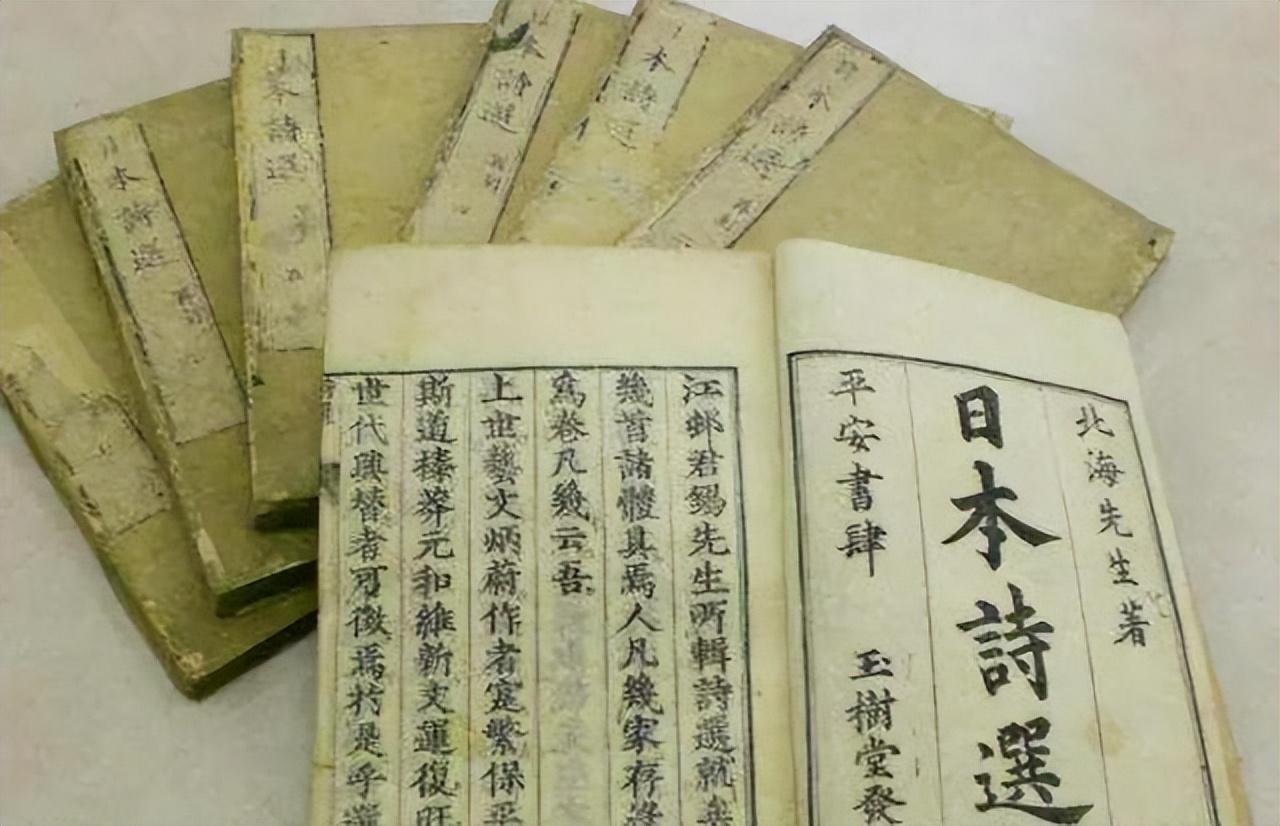 北海先生著
日本詩選
平安書肆 玉樹堂發
江邨君錫先生所輯詩選就
幾首諸體具焉人凡幾家存
爲卷凡幾云吾
上世藝文炳蔚作者寔繁保平
斯道榛莽元和維新文運復旺
世代興替者可徵焉於是乎
本詩選
本詩選
本詩選
本詩選
詩選